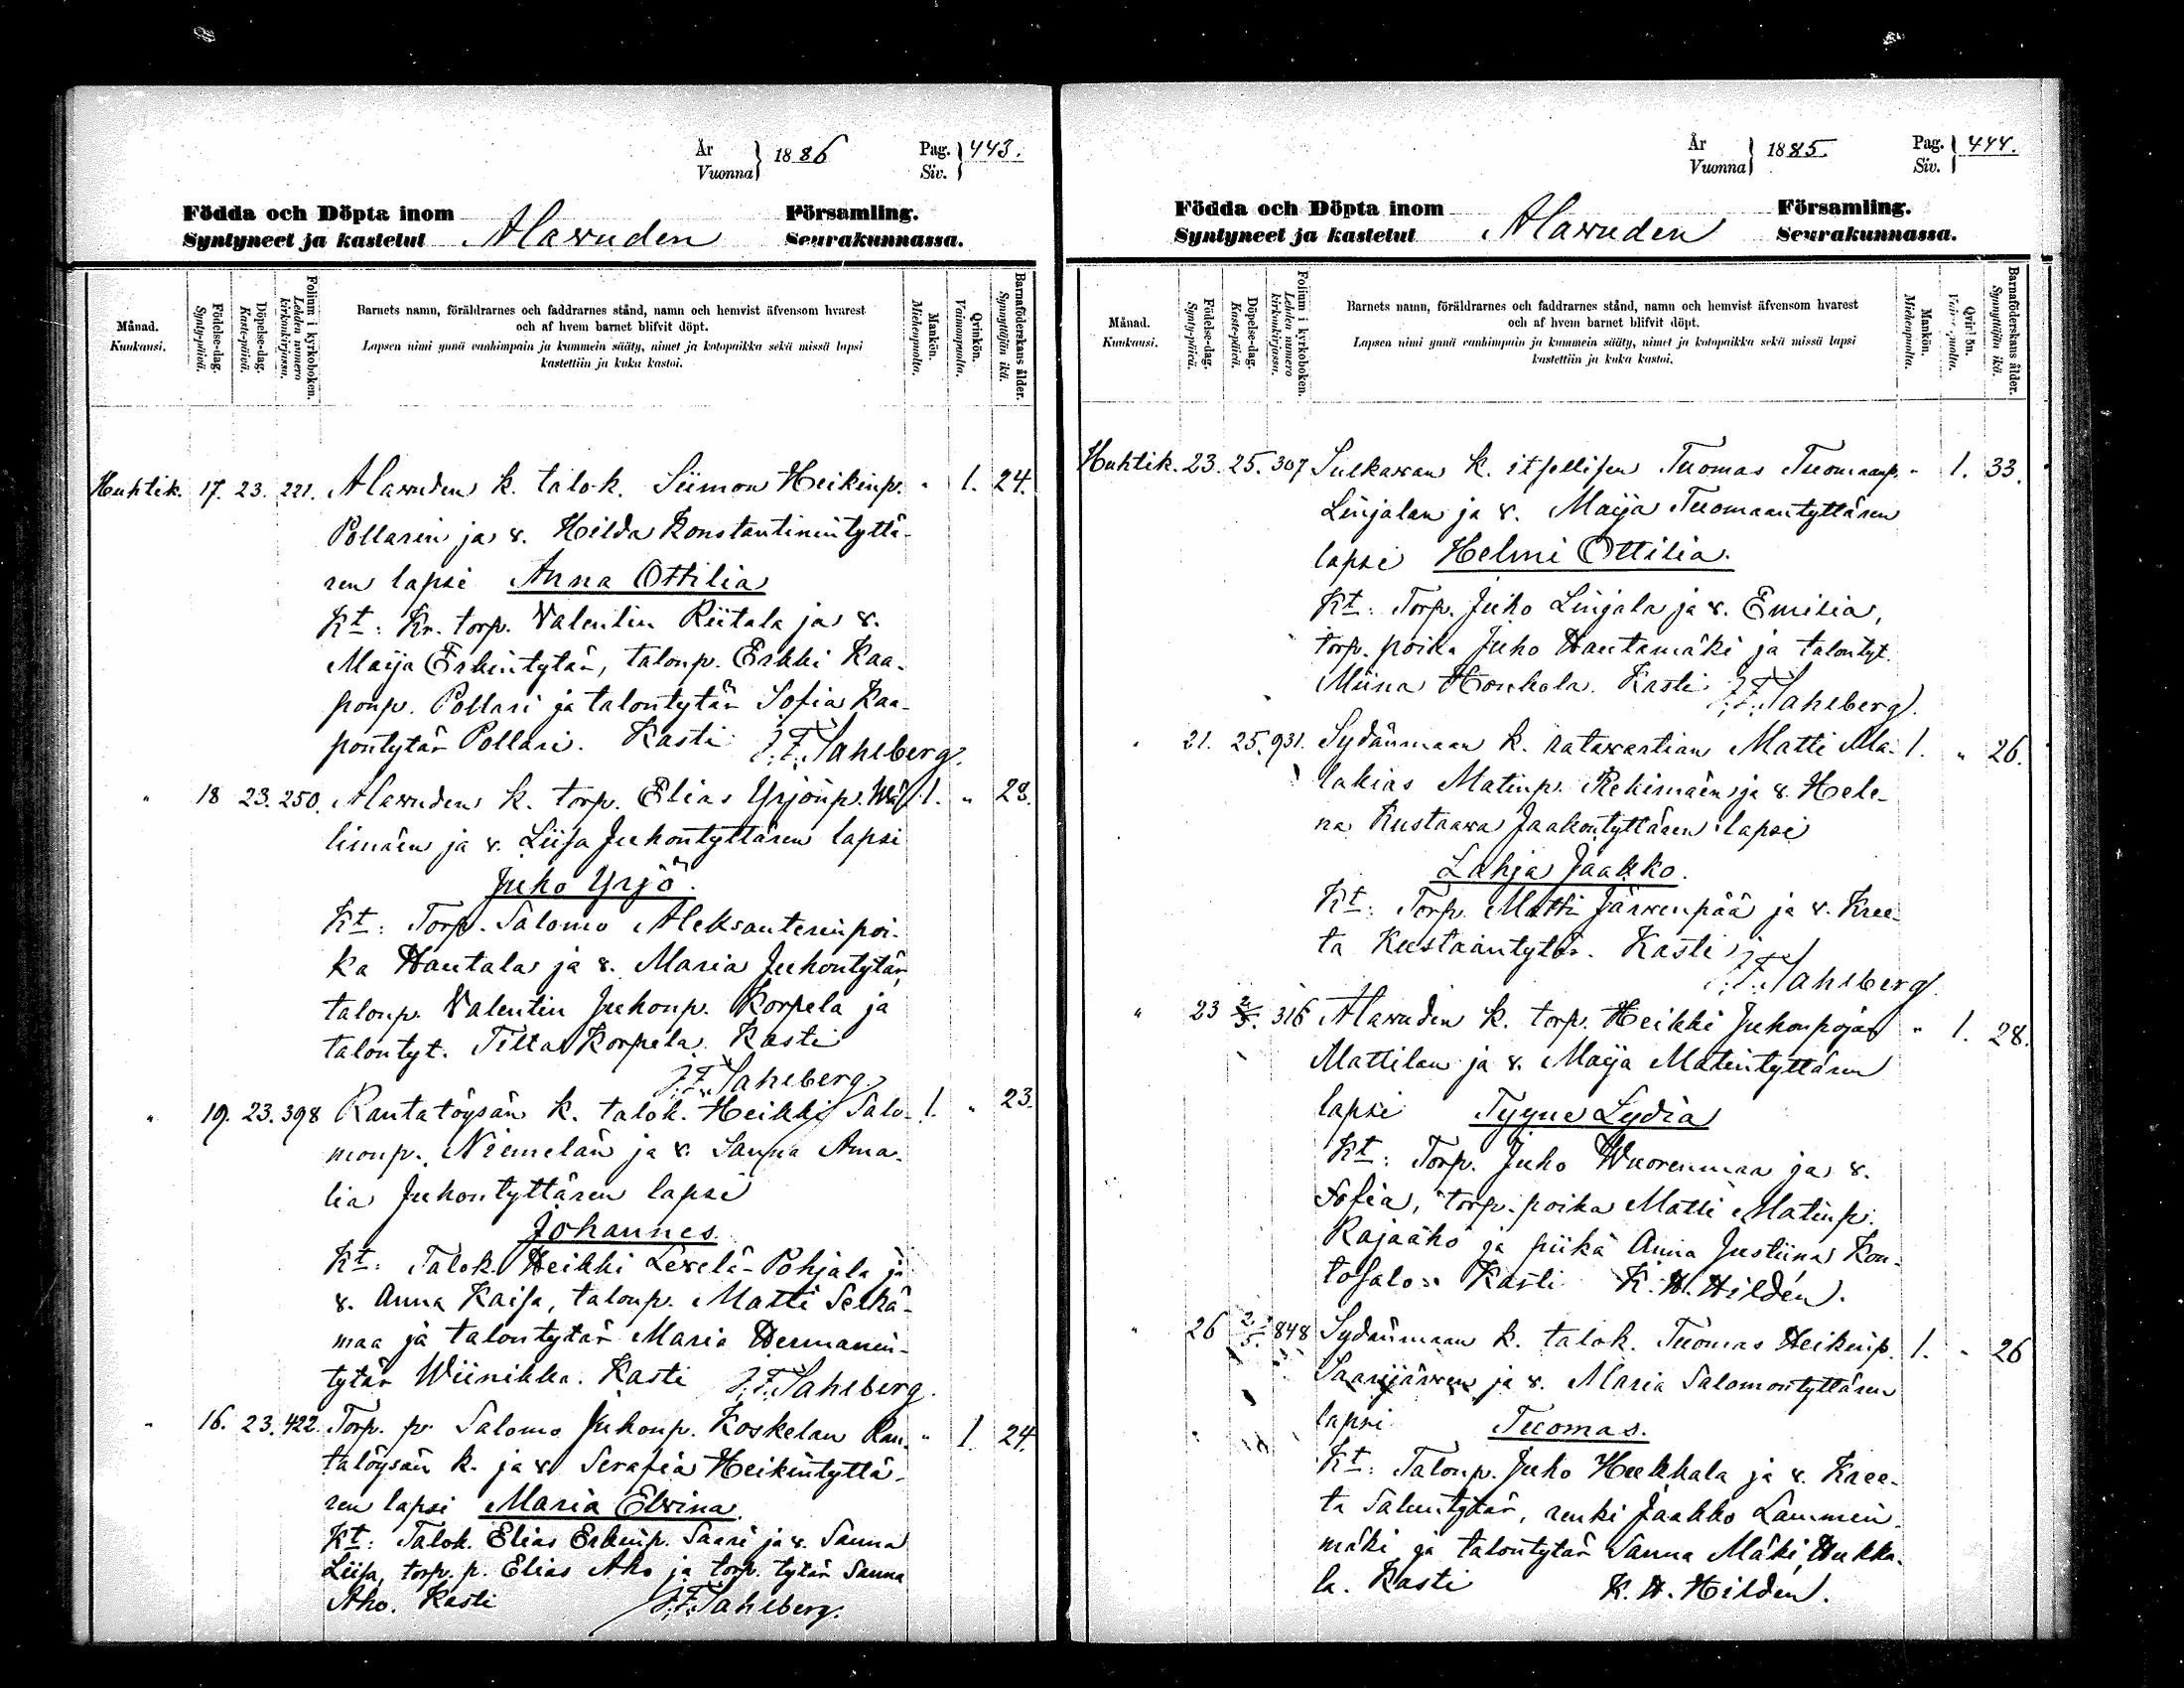 År
Vuonna } 1886
Pag.
Siv. } 443.
Födda och Döpta inom
Syntyneet ja kastetut
Alavuden
Församling.
Seurakunnassa.
Månad.
Kuukausi.
Födelse-dag.
Synty-päivä.
Döpelse-dag.
Kaste-päivä.
Folium i kyrkoboken.
Lehden numero
kirkonkirjassa.
Barnets namn, föräldrarnes och faddrarnes stånd, namn och hemvist äfvensom hvarest
och af hvem barnet blifvit döpt.
Lapsen nimi ynnä vanhimpain ja kummein sääty, nimet ja kotopaikka sekä missä lapsi
kastettiin ja kuka kastoi.
Mankön.
Miehenpuolta.
Qvinkön.
Vaimonpuolta.
Barnaföderskans ålder.
Synnyttäjän ikä.
Huhtik. 17. 23. 221. Alavuden k. talok. Siimon Heikinp. " 1. 24.
Pollarin ja v. Hilda Konstantinintyttä-
ren lapsi Anna Ottilia
Kt: Kr. torp. Valentin Riitala ja v.
Maija Erkintytär, talonp. Erkki Kaa-
ponp. Pollari ja talontytär Sofia Kaa-
pontytär Pollari. Kasti J. F. Sahlberg.
" 18 23. 250. Alavuden k. torp. Elias Yrjönp. Wä- 1. " 28.
limäen ja v. Liisa Juhontyttären lapsi
Juho Yrjö.
Kt: Torp. Salomo Aleksanterinpoi-
ka Hautala ja v. Maria Juhontytär,
talonp. Valentin Juhonp. Korpela ja
talontyt. Tilta Korpela. Kasti
J. F. Sahlberg.
" 19. 23. 398 Rantatöysän k. talok. Heikki Salo- 1. " 23.
monp. Niemelän ja v. Sanna Ama-
lia Juhontyttären lapsi
Johannes.
Kt: Talok. Heikki Levelä-Pohjala ja
v. Anna Kaisa, talonp. Matti Selkä-
maa ja talontytär Maria Hermannin-
tytär Wiinikka. Kasti J. F. Sahlberg.
" 16. 23. 422. Torp. p. Salomo Juhonp. Koskelan Ran- " 1. 24.
tatöysän k. ja v. Serafia Heikintyttä-
ren lapsi Maria Elvina.
Kt: Talok. Elias Erkinp. Saari ja v. Sanna
Liisa, torp. p. Elias Aho ja torp. tytär Sanna
Aho. Kasti J. F. Sahlberg.
År
Vuonna } 1885.
Pag.
Siv. } 444.
Födda och Döpta inom
Syntyneet ja kastetut
Alavuden
Församling.
Seurakunnassa.
Månad.
Kuukausi.
Födelse-dag.
Synty-päivä.
Döpelse-dag.
Kaste-päivä.
Folium i kyrkoboken.
Lehden numero
kirkonkirjassa.
Barnets namn, föräldrarnes och faddrarnes stånd, namn och hemvist äfvensom hvarest
och af hvem barnet blifvit döpt.
Lapsen nimi ynnä vanhimpain ja kummein sääty, nimet ja kotopaikka sekä missä lapsi
kastettiin ja kuka kastoi.
Mankön.
Miehenpuolta.
Barnaföderskans ålder.
Synnyttäjän ikä.
Huhtik. 23. 25. 307 Sulkavan k. itsellisen Tuomas Tuomaanp. " 1. 33.
Linjalan ja v. Maija Tuomaantyttären
lapsi Helmi Ottilia.
Kt: Torp. Juho Linjala ja v. Emilia,
torp. poika Juho Hautamäki ja talontyt.
Miina Honkola. Kasti J. F. Sahlberg.
" 21. 25. 931. Sydänmaan k. ratavartian Matti Ma- 1. " 26.
lakias Matinp. Rekimäen ja v. Hele-
na Kustaava Jaakontyttären lapsi
Lahja Jaakko.
Kt: Torp. Matti Järvenpää ja v. Kree-
ta Kustaantytär. Kasti
J. F. Sahlberg.
" 23 2/5. 316 Alavuden k. torp. Heikki Juhonpojan " 1. 28.
Mattilan ja v. Maija Matintyttären
lapsi Tyyne Lydia
Kt: Torp. Juho Wuorenmaa ja v.
Sofia, torp. poika Matti Matinp.
Rajaaho ja piika Anna Justiina Kon-
tosalo. Kasti K. H. Hildén.
" 26 2/5. 848 Sydänmaan k. talok. Tuomas Heikinp. 1. " 26
Saarijärven ja v. Maria Salomontyttären
lapsi Tuomas.
Kt: Talonp. Juho Hukkala ja v. Kree-
ta tytär, renki Jaakko Lammin-
mäki ja talontytär Sanna Mäki Hukka-
la. Kasti K. H. Hildén.